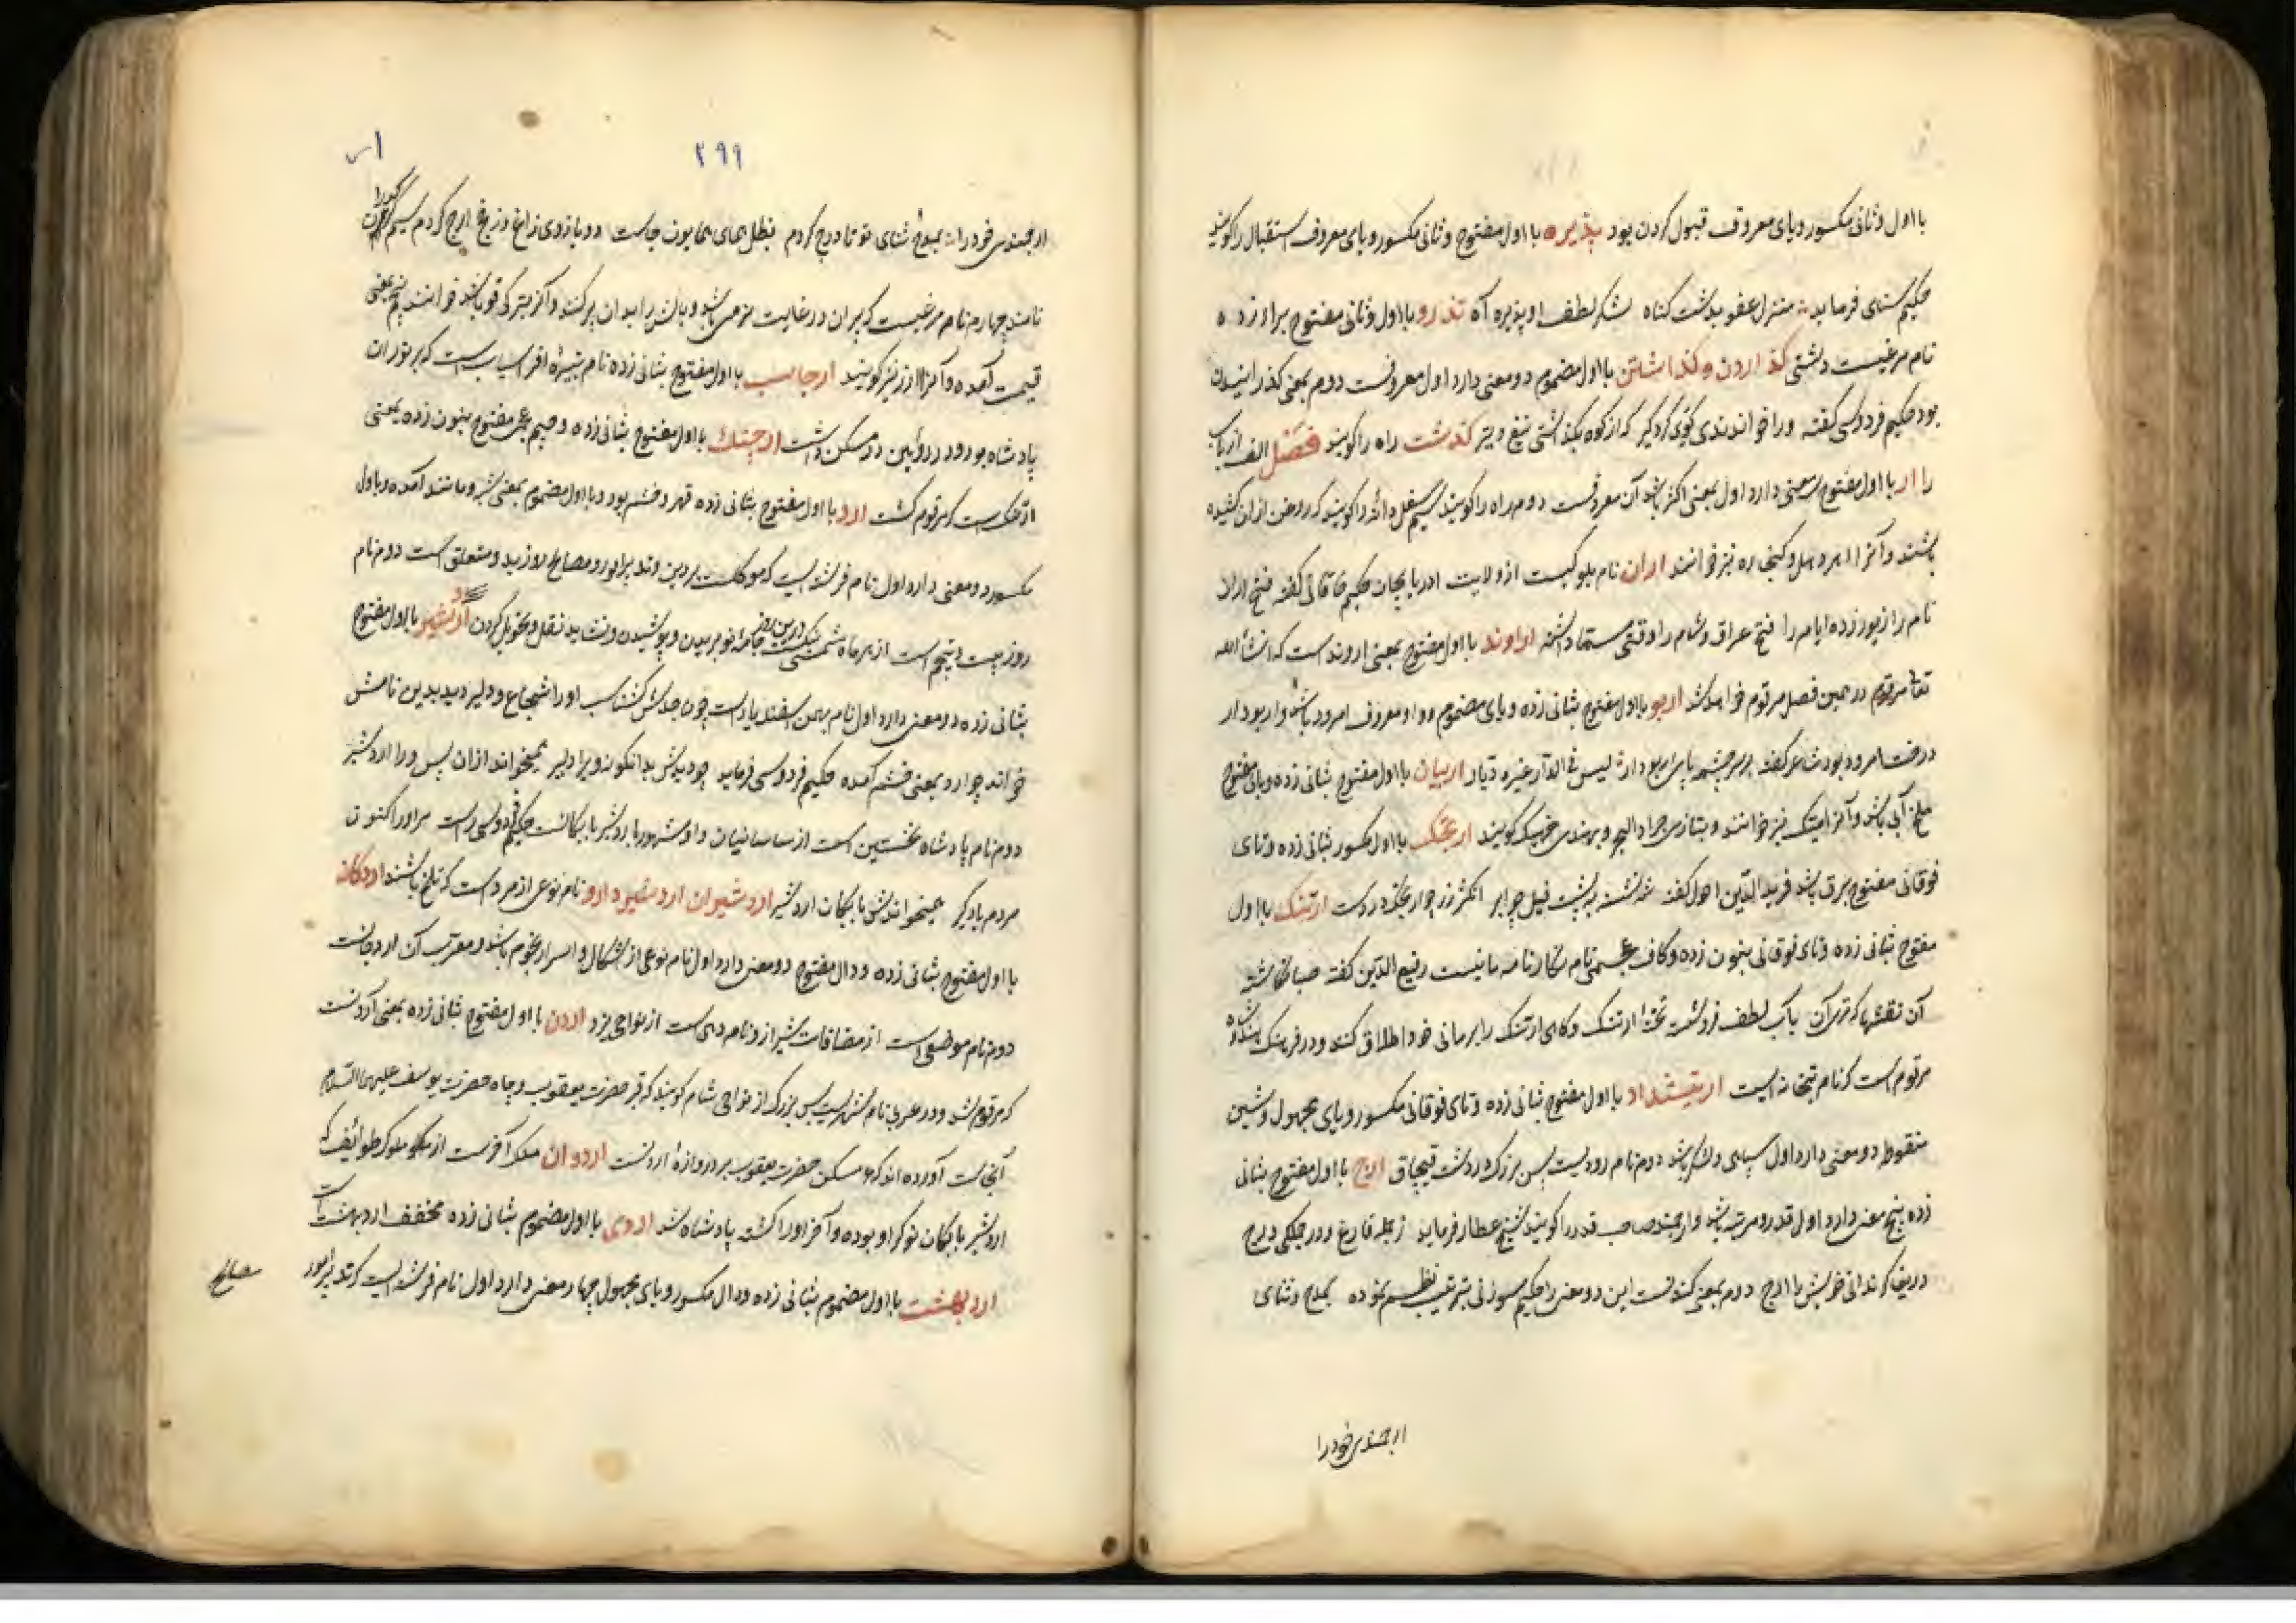 با اول و ثانی مکسور و یای معروف قبول کردن بود پذیره با اول مفتوح و ثانی مکسور و یای معروف استقبال را گویند
حکیم سنای فرماید منزل عفو بدشت گناه لشکر لطف او پذیره آه تذرو با اول و ثانی مفتوح براء زده
نام مرغیست دشتی گذاردن و گذاشتن با اول مضموم دو معنی دارد اول معروفست دوم بمعنی گذرانیدن
بود حکیم فردوسی گفته ورا خواندندی گوی گردگیر که از کوه بگذاشتی تیغ و تیر گذشت راه را گویند فصل الف از باب
را ار با اول مفتوح سه معنی دارد اول بمعنی اگر باشد و آن معروفست دوم اره را گویند سیم ثفل دانه را گویند که روغن ازان کشیده
باشند و آنرا نیز خوانند اران نام بلوکیست از ولایت آدربایجان حکیم خاقانی گفته فتح اران
نام را زیور زده ایام را فتح عراق و شام را وقتی مسما داشته اراوند با اول مفتوح بمعنی اروند است که انشاء الله
تعالی مرقوم در همین فصل مرقوم خواهد شد اربو با اول مفتوح بثانی زده و بای مضموم و واو معروف امرود باشد و اربودار
درخت امرود بود شاعر گفته بر سر چشمه پای اربو دار لیس فی الدار غیره دیار اربیان با اول مفتوح بثانی زده و بای مفتوح
ملخ آبی باشد و آنرا میگ نیز خوانند و بتازی جراد البحر و بهندی جهینگ گویند ارتجک با اول مکسور بثانی زده و تای
فوقانی مفتوح برق باشد فرید الدین احول گفته شه نشسته به پشت فیل چو ابر انگشتر زر چو ارتجک در دست ارتنگ با اول
مفتوح بثانی زده و تای فوقانی بنون زده و کاف عجمی نام نگارنامه مانیست رفیع الدین گفته صبا نگاشته
آن نقشها که تری آن بآب لطف فرو شست تخته ارتنگ و گاهی ارتنگ را بر مانی خود اطلاق کنند و در فرهنگ هندوشاه
مرقوم است که نام بتخانه ایست ارتیشدار با اول مفتوح بثانی زده و تای فوقانی مکسور و یای مجهول و شین
منقوط دو معنی دارد اول سپاهی و لشکر باشد دوم نام رودیست بس بزرگ در دشت قبچاق ارج با اول مفتوح بثانی
زده پنج معنی دارد اول قدر و مرتبه باشد و ارجمند صاحب قدر را گویند شیخ عطار فرماید ز جمله فارغ و در جملگی درج
دریغا گر ندانی خویش را ارج دوم بمعنی کند است این دو معنی را حکیم سوزنی بترتیب نظم نموده بمدح و ثنای
ارجمندی خود را
۲۹۹
ارجمندی خود را بمدح و ثنای تو تا درج کردم بظل همای همایون جاهت دو بازوی زاغ و زغن ارج کردم سیم کرگدن را
نامند چهارم نام مرغیست که پر آن در غایت نرمی باشد و بالش را بدان پر کنند و آنرا قو خوانند پنجم بمعنی
قیمت آمده و آنرا ارز نیز گویند ارجاسب با اول مفتوح بثانی زده نام نبیره افراسیاب است که بر توران
پادشاه بود و در روئین دژ مسکن داشت ارچنک با اول مفتوح بثانی زده و جیم عجمی مفتوح بنون زده بمعنی
ارتنگ است که مرقوم گشت ارد با اول مفتوح بثانی زده قهر و خشم بود و با اول مضموم بمعنی شبه و مانند آمده و با اول
مکسور دو معنی دارد اول نام فرشته ایست که موکلست بر دین و تدبیر امور و مصالح روز بدو متعلق است دوم نام
روز بیست و پنجم است از هر ماه شمسی نیک است درین روز جامه نو بریدن و پوشیدن و نشاید نقل و تحویل کردن اردشیر با اول مفتوح
بثانی زده دو معنی دارد اول نام بهمن اسفندیار است چون جدش گشتاسب او را شجاع و دلیر دید بدین نامش
خواند چه ارد بمعنی خشم آمده حکیم فردوسی فرماید چو دیدش بدانگونه ویرا دلیر همیخواند ازان پس ورا اردشیر
دوم نام پادشاه نخستین است از ساسانیان و او مشهور باردشیر بابکانست حکیم فردوسی راست مر او را کنون
مردم یادگیر همیخواندش بابکان اردشیر اردشیران اردشیر دارو نام نوعی از مرو است که تلخ باشد اردکان
با اول مفتوح بثانی زده و دال مفتوح دو معنی دارد اول نام نوعی از اشکال و اسرار نجوم باشد و معرب آن اردجانست
دوم نام موضعی است از مضافات شیراز و نام دهی است از نواحی یزد اردن با اول مفتوح بثانی زده بمعنی
که مرقوم شد و در عربی نام شهریست بس بزرگ از نواحی شام گویند که قبر حضرت یعقوب و چاه حضرت یوسف علیهما السلام
آنجاست آورده اند که مسکن حضرت یعقوب بر دروازه اردنست اردوان ملک آخر است از ملوک طوائف که
اردشیر بابکان نوکر او بوده و آخر او را کشته پادشاه شد اردی با اول مضموم بثانی زده مخفف اردیبهشت است
اردیبهشت با اول مضموم بثانی زده و دال مکسور و یای مجهول چهار معنی دارد اول نام فرشته ایست که تدبیر امور
مصالح